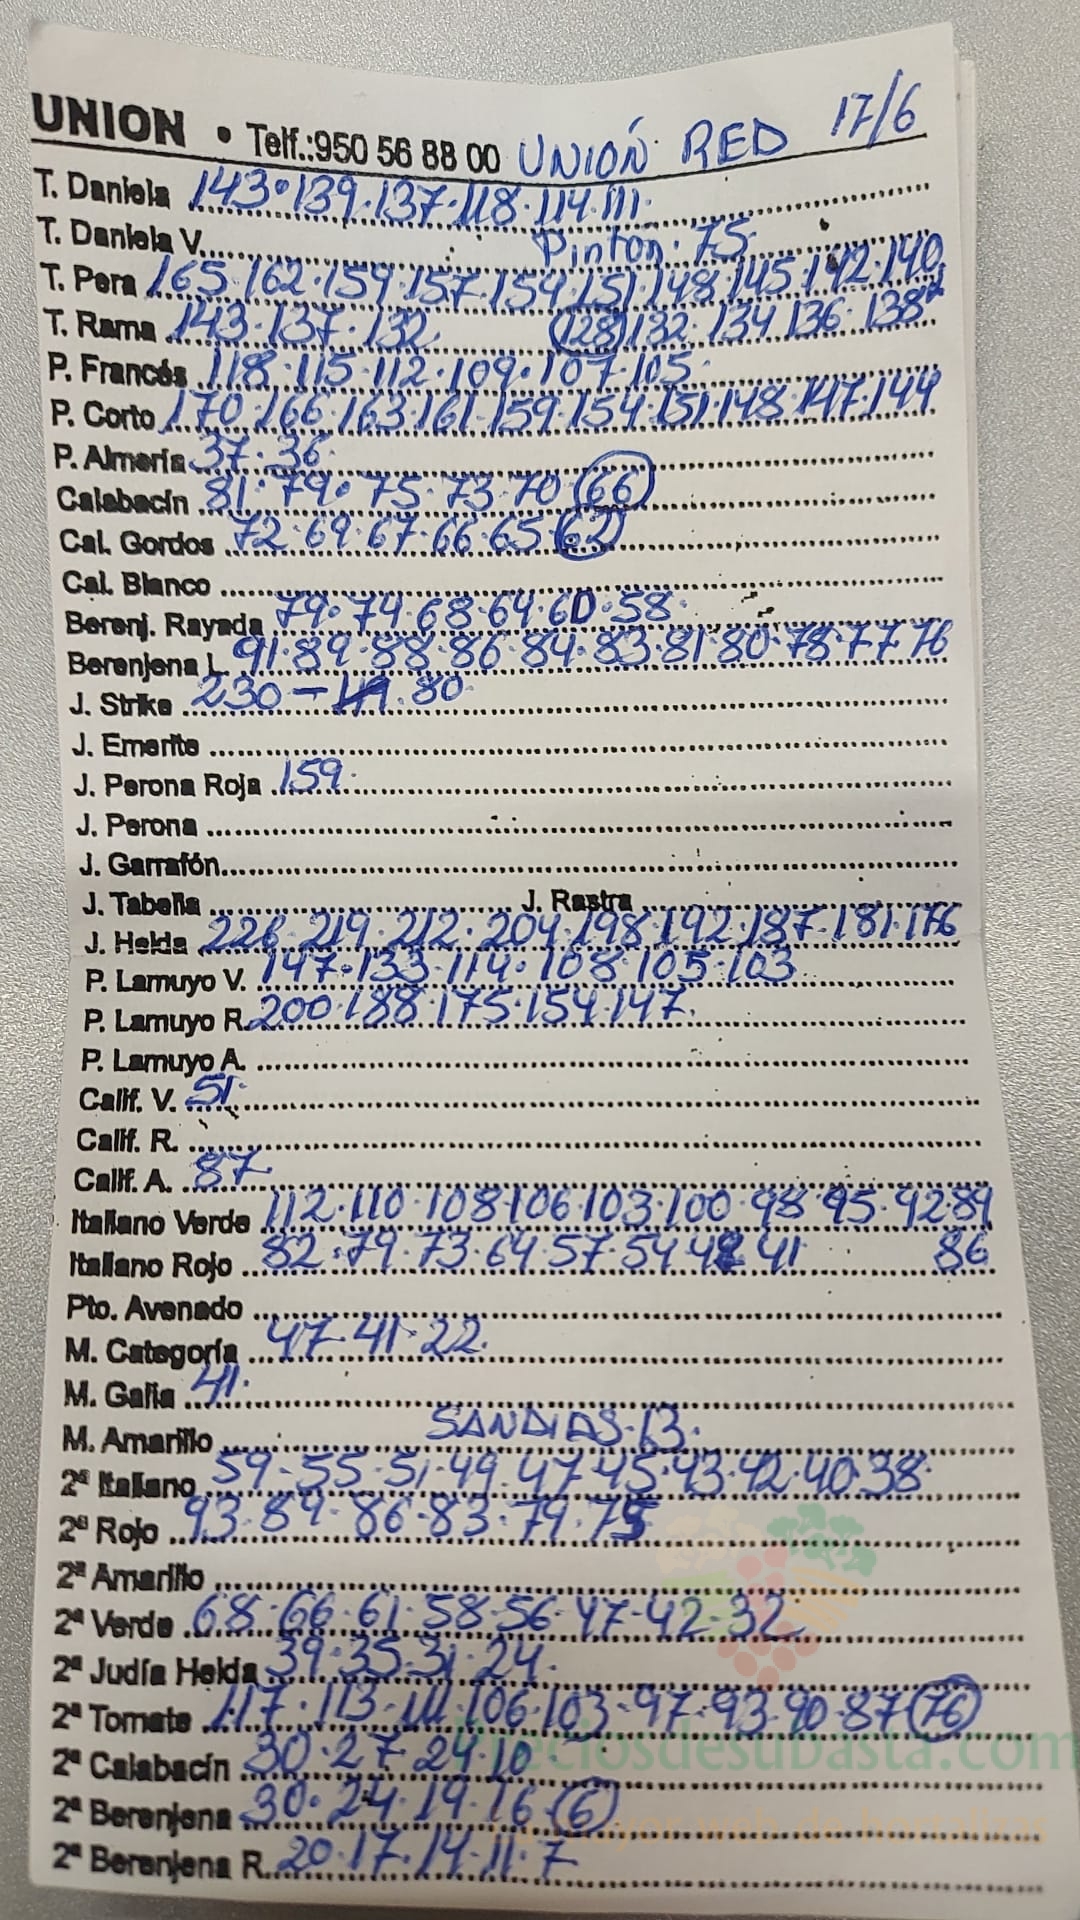 UNION • Telf.:950 56 88 00 UNIÓN RED 17/6
T. Daniela 143·139·137·118·114·111·
T. Daniela V. Pinton·75·
T. Pera 165·162·159·157·154·151·148·145·142·140
T. Rama 143·137·132 (128) 132·134 136·138
P. Francés 118·115·112·109·107·105·
P. Corto 170·166·163·161·159·154·151·148·147·144
P. Almería 37·36·
Calabacín 81·79·75·73·70 (66)
Cal. Gordos 72·69·67·66·65·(62)
Cal. Blanco
Berenj. Rayada 79·74·68·64·60·58·
Berenjena L. 91·89·88·86·84·83·81·80·78·77·76
J. Strike 230 - 80·
J. Emerite
J. Perona Roja 159·
J. Perona
J. Garrafón
J. Tabella J. Rastra
J. Helda 226·219·212·204·198·192·187·181·176
P. Lamuyo V. 147·133·114·108·105·103
P. Lamuyo R. 200·188·175·154·147·
P. Lamuyo A.
Calif. V. 51·
Calif. R.
Calif. A. 87·
Italiano Verde 112·110·108·106·103·100·98·95·92·89
Italiano Rojo 82·79·73·64·57·54 41 86
Pto. Avenado
M. Categoría 47·41·22·
M. Galia 41·
M. Amarillo SANDIAS·13·
2ª Italiano 59·55·51·49·47·45·43·42·40·38·
2ª Rojo 93·89·86·83·79·75
2ª Amarillo
2ª Verde 68·66·61·58·56·47·42·32·
2ª Judía Helda 39·35·31·24·
2ª Tomate 117·113·111·106·103·97·93·90·87 (76)
2ª Calabacín 30·27·24·10
Preciosdesubasta.com
2ª Berenjena 30·24·19·16·(6)
2ª Berenjena R. 20·17·14·11·7